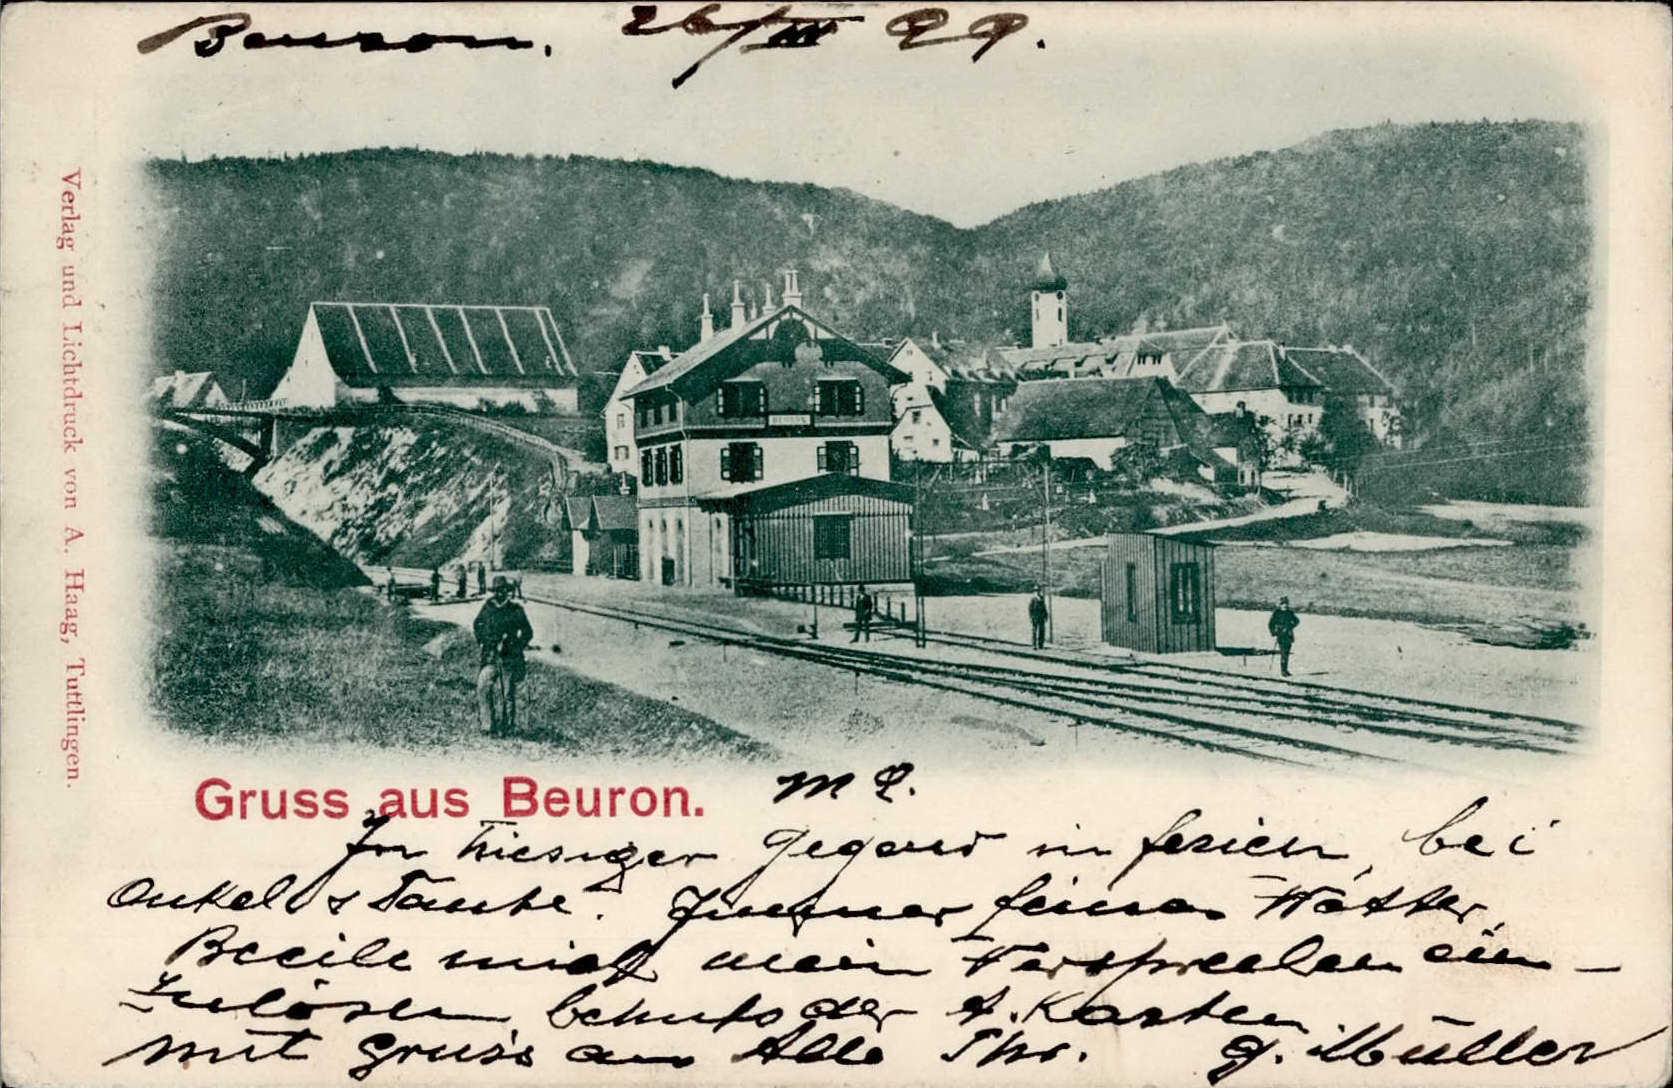 Beuron. 26/III 99.
BEURON
Verlag und Lichtdruck von A. Haag, Tuttlingen.
Gruss aus Beuron.
M L.
In hiesiger Gegend in ferien, bei
Onkel & Tante. Immer feines Wetter,
Beeile mich mein Versprechen ein-
zulösen behufs der A. Karten
mit Gruss an Alle Ihr. G. Müller